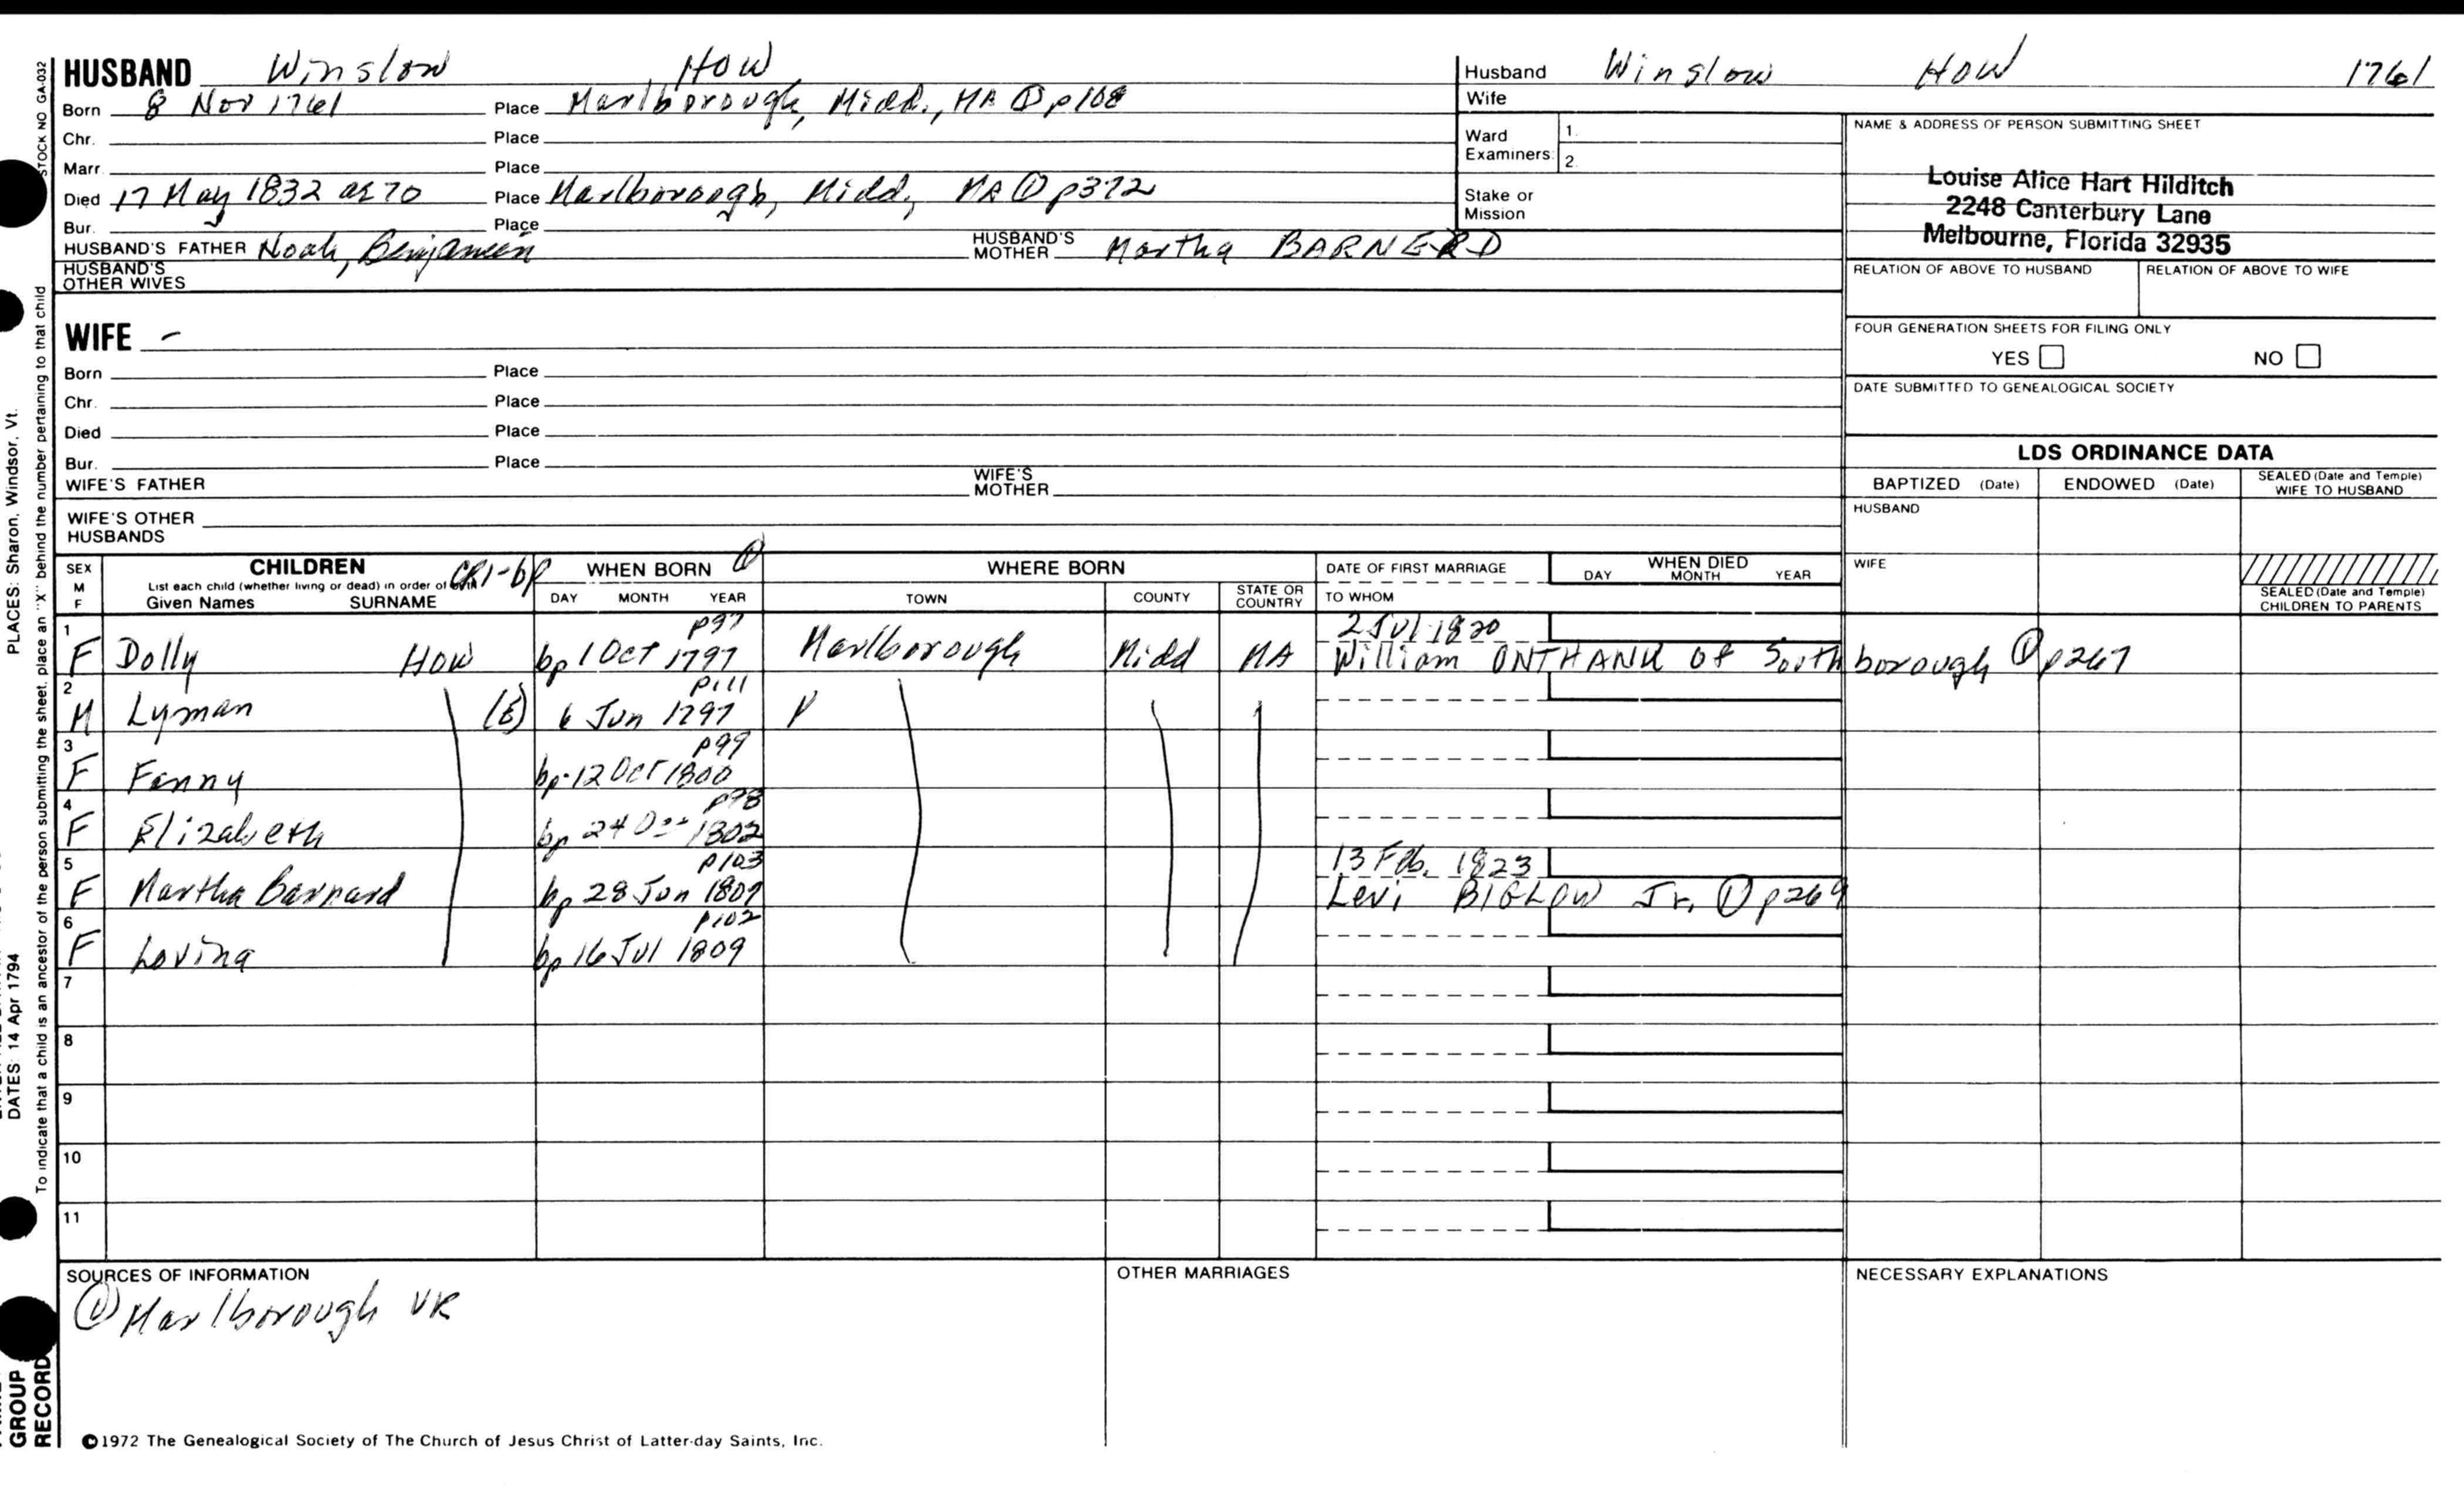 HUSBAND Winslow HOW
Born 8 Nov 1761 Place Marlborough, Midd., MA ① p168
Chr. Place
Marr. Place
Died 17 May 1832 ae 70 Place Marlborough, Midd, MA ① p372
Bur. Place
HUSBAND'S FATHER Noah, Benjamin HUSBAND'S MOTHER Martha BARNERD
HUSBAND'S OTHER WIVES
WIFE -
Born Place
Chr. Place
Died Place
Bur. Place
WIFE'S FATHER WIFE'S MOTHER
WIFE'S OTHER HUSBANDS
Husband Winslow HOW 1761
Wife
Ward Examiners: 1. 2.
Stake or Mission
NAME & ADDRESS OF PERSON SUBMITTING SHEET
Louise Alice Hart Hilditch
2248 Canterbury Lane
Melbourne, Florida 32935
RELATION OF ABOVE TO HUSBAND RELATION OF ABOVE TO WIFE
FOUR GENERATION SHEETS FOR FILING ONLY
YES NO
DATE SUBMITTED TO GENEALOGICAL SOCIETY
LDS ORDINANCE DATA
BAPTIZED (Date) ENDOWED (Date) SEALED (Date and Temple) WIFE TO HUSBAND
HUSBAND
WIFE
SEALED (Date and Temple) CHILDREN TO PARENTS
SEX M F CHILDREN CR1-bp WHEN BORN ① WHERE BORN DATE OF FIRST MARRIAGE WHEN DIED
List each child (whether living or dead) in order of birth DAY MONTH YEAR
Given Names SURNAME DAY MONTH YEAR TOWN COUNTY STATE OR COUNTRY TO WHOM
1 p97 2 Jul 1820
F Dolly HOW bp 1 Oct 1797 Marlborough Midd MA William ONTHANK of Southborough ① p267
2 p111
M Lyman (E) 6 Jun 1797
3 p99
F Fanny bp 12 Oct 1800
4 p98
F Elizabeth bp 24 1802
5 p103 13 Feb. 1823
F Martha Barnard bp 28 Jun 1807 Levi BIGLOW Jr. ① p269
6 p102
F Lovina bp 16 Jul 1809
7
8
9
10
11
SOURCES OF INFORMATION OTHER MARRIAGES NECESSARY EXPLANATIONS
① Marlborough VR
©1972 The Genealogical Society of The Church of Jesus Christ of Latter-day Saints, Inc.
STOCK NO GA-032
To indicate that a child is an ancestor of the person submitting the sheet, place an "X" behind the number pertaining to that child
PLACES: Sharon, Windsor, Vt.
DATES: 14 Apr 1794
GROUP
RECORD